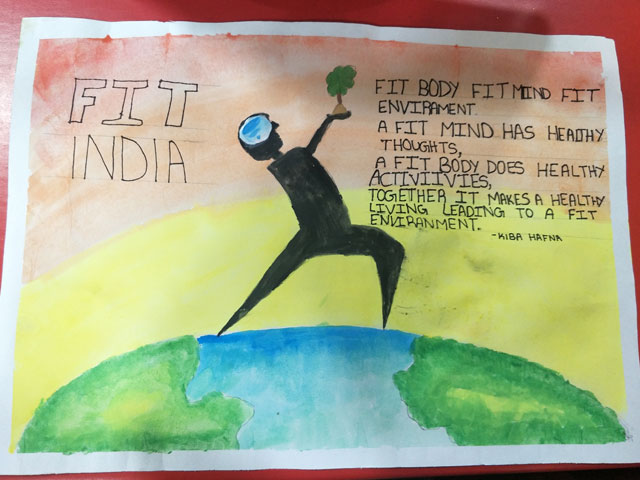 FIT
INDIA
FIT BODY FIT MIND FIT
ENVIRAMENT.
A FIT MIND HAS HEALTHY
THOUGHTS,
A FIT BODY DOES HEALTHY
ACTIVIIVIES,
TOGETHER IT MAKES A HEALTHY
LIVING LEADING TO A FIT
ENVIRANMENT.
-KIBA HAFNA